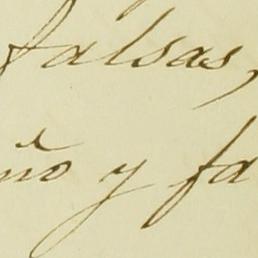 falsas,
ño y fa